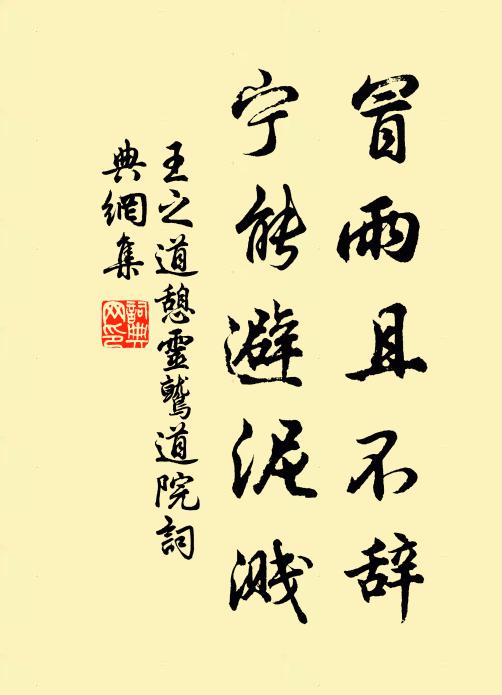 冒雨且不辞
宁能避泥溅
王之道憩靈鷲道院詞
典網集
詞典
网印